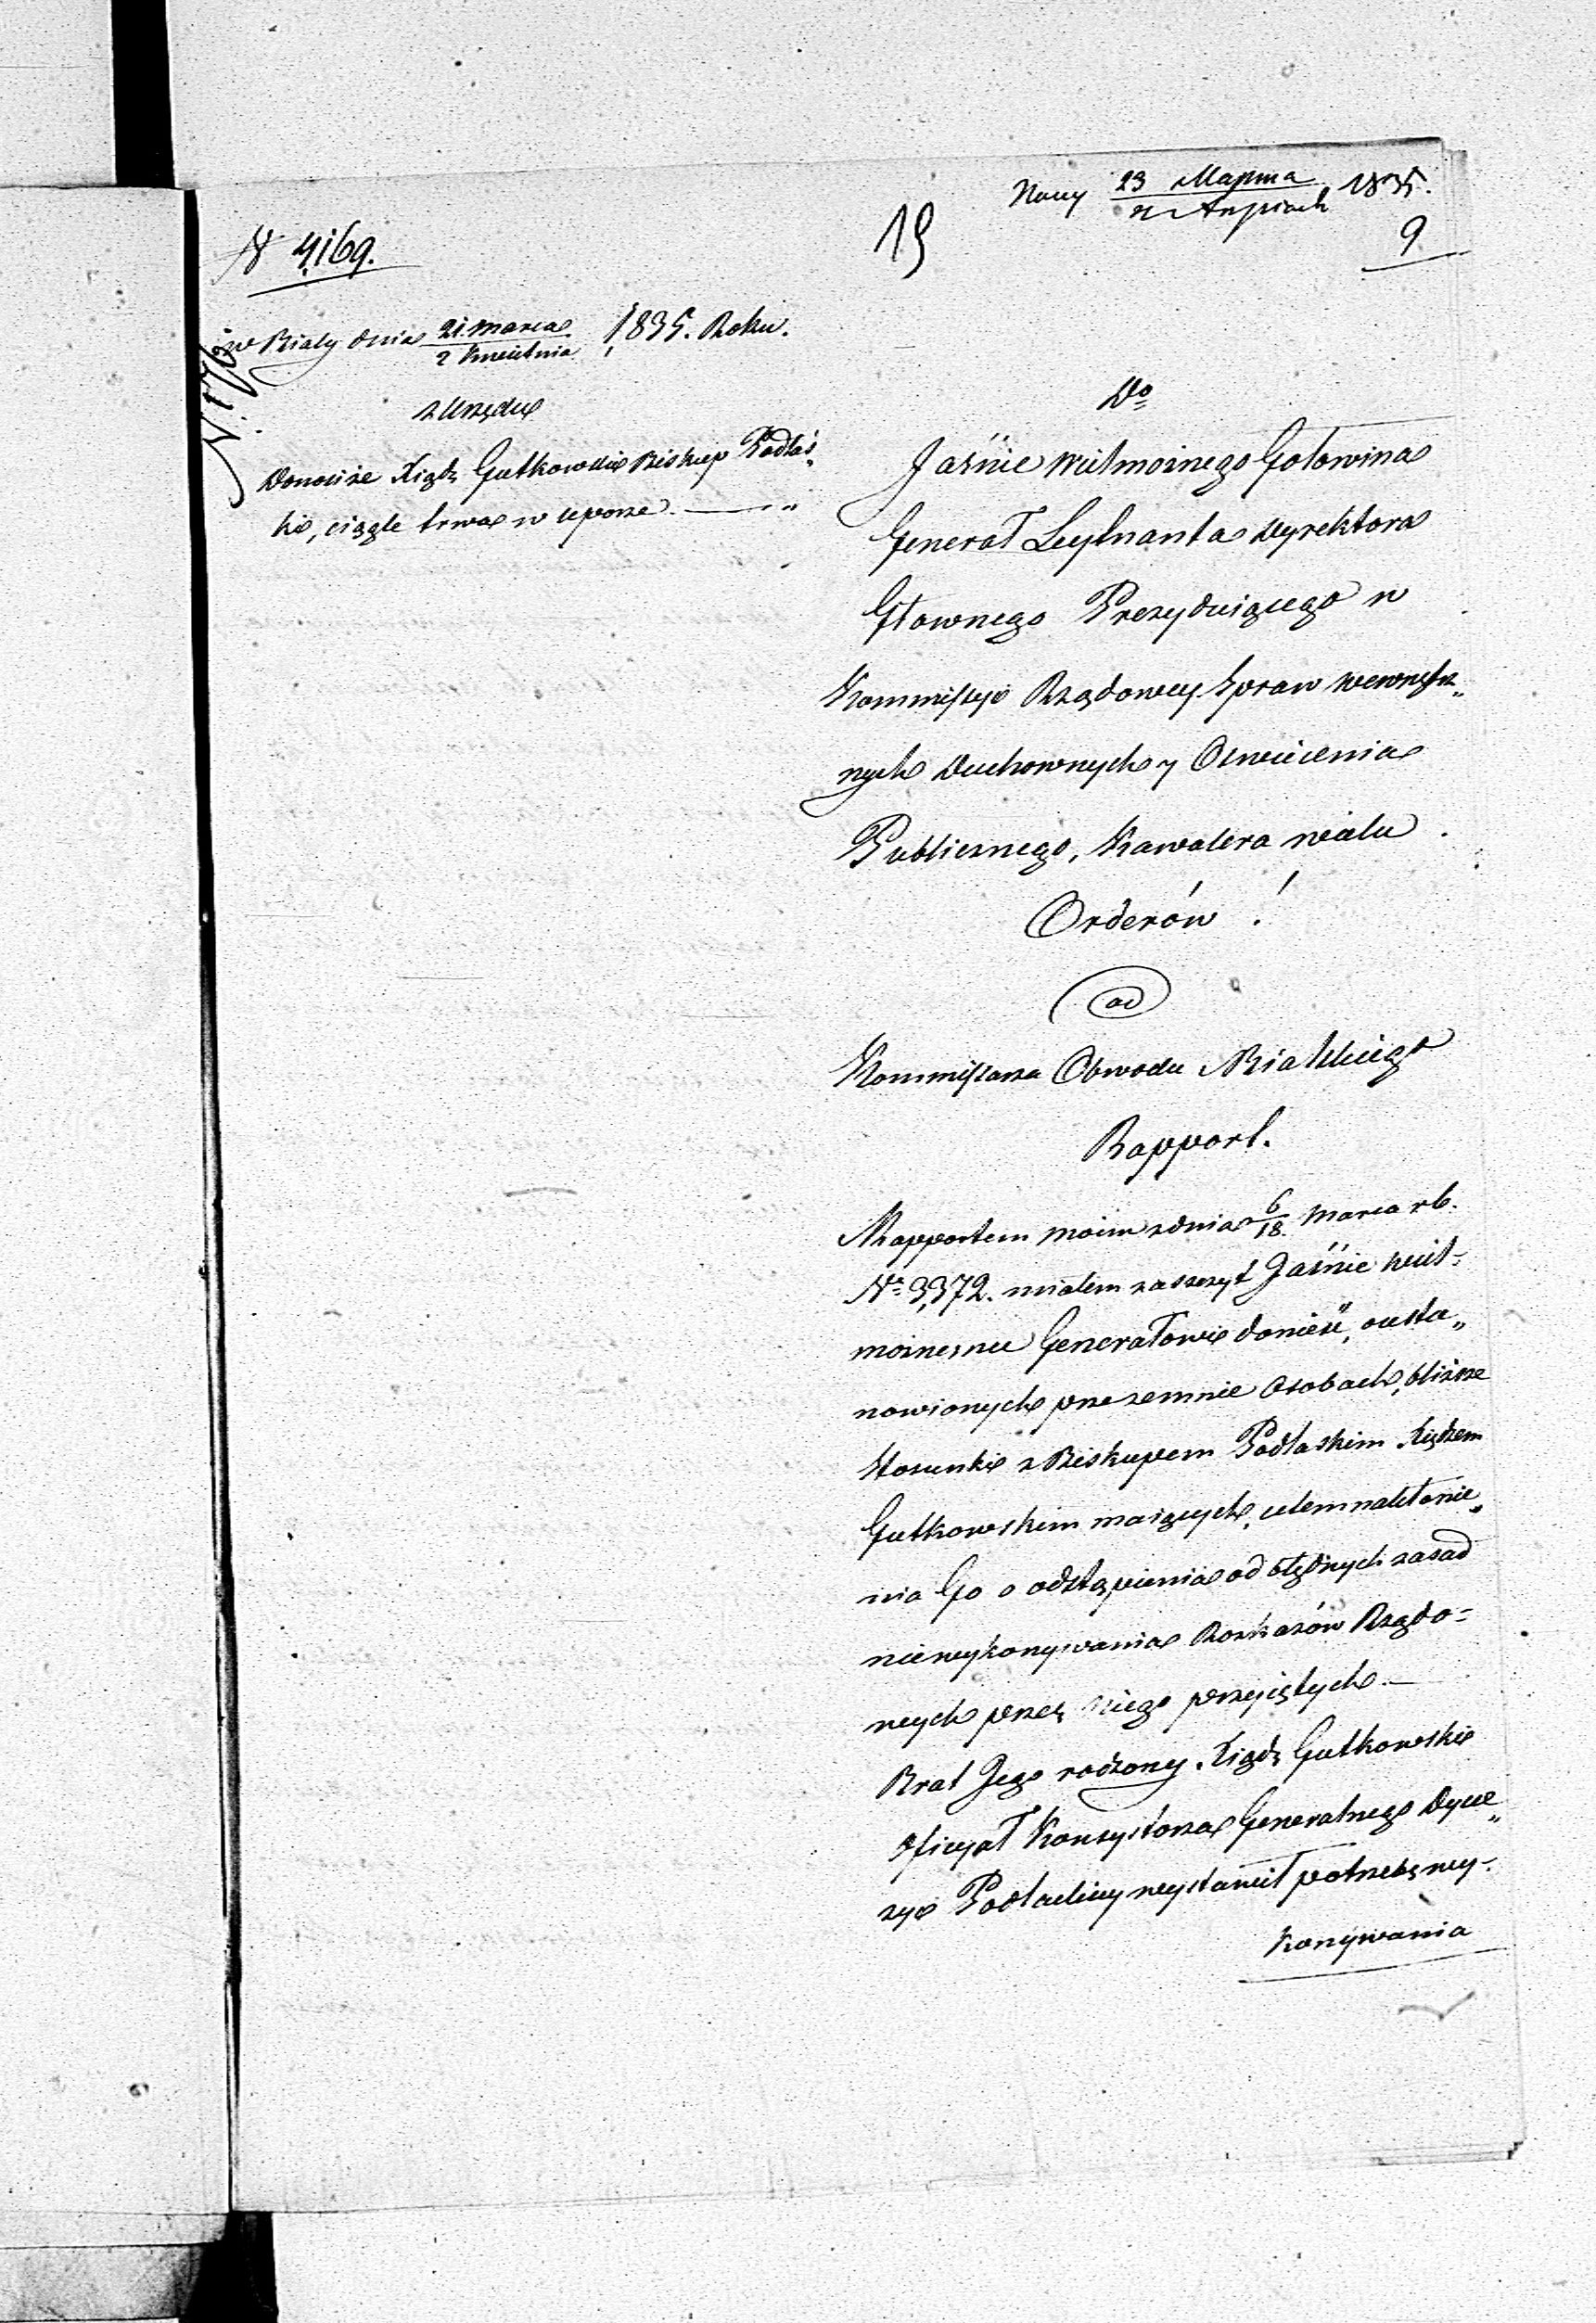 23 Марта 1835.
4 Апреля
19
9
N 4,169.
N. 176
w Biały dnia 21. Marca 1835. Roku.
2 Kwietnia
z Urzędu
Donosi że Xiądz Gutkowski Biskup Podlas„
ki, ciągle trwa w uporze. — „
Do
Jaśnie Wielmożnego Gołowina
Generał Leytnanta Dyrektora
Głownego Prezyduiącego w
Kommissyi Rządowey Spraw Wewnętrz„
nych Duchownych y Oświecenia
Publicznego, Kawalera wielu
Orderów !
od
Kommissarza Obwodu Bialskiego
Rapport.
Rapportem moim z dnia 6/18. Marca rb.
Nr 3,372. miałem zaszczyt Jaśnie Wiel=
możnemu Generałowi donieść, o usta„
nowionych przezemnie Osobach, bliższe
stosunki z Biskupem Podlaskim Xiędzem
Gutkowskim maiących, celem nakłonie„
nia Go o odstąpienia od błędnych zasad
niewykonywania Rozkazów Rządo=
wych przez niego przyiętych. —
Brat Jego rodzony Xiądz Gutkowski
Oficyał Konsystorza Generalnego Dyece„
zyi Podlaskiey wystawił potrzebę wy=
konywania